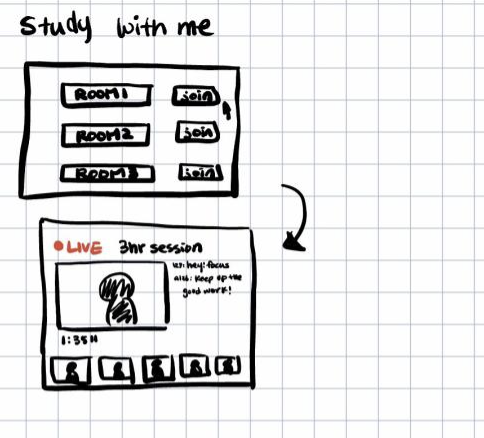 Study with me
ROOM1 join
ROOM2 join
ROOM3 join
LIVE 3hr session
hey! focus
Keep up the
good work!